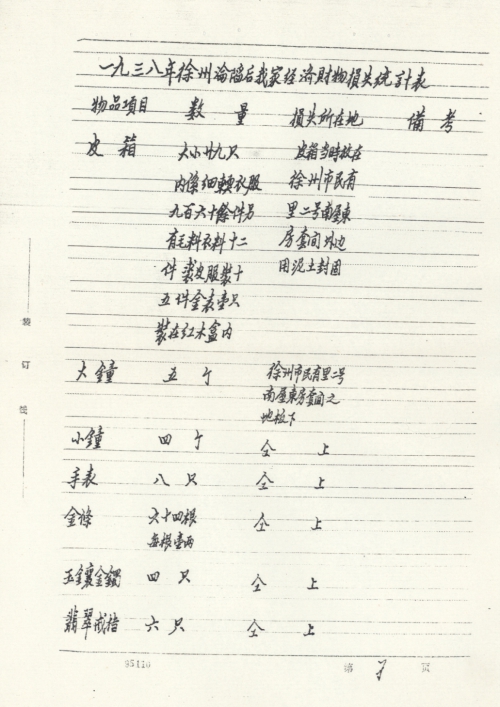 一九三八年徐州淪陷后我家经济財物損失统計表
物品項目 数量 損失所在地 備考
皮箱 大小廿九只 皮箱当時放在
内係细輭衣服 徐州市民有
九百六十餘件另 里二号南屋東
有毛料衣料十二 房套间外边
件裘皮服装十 用泥土封固
五件金表壹只
裝在红木盒内
大鐘 五个 徐州市民有里二号
南屋東房套间之
地板下
小鐘 四个 仝上
手表 八只 仝上
金條 六十四根 仝上
每根壹两
玉鑲金鐲 四只 仝上
翡翠戒指 六只 仝上
装订线
95110 第 页